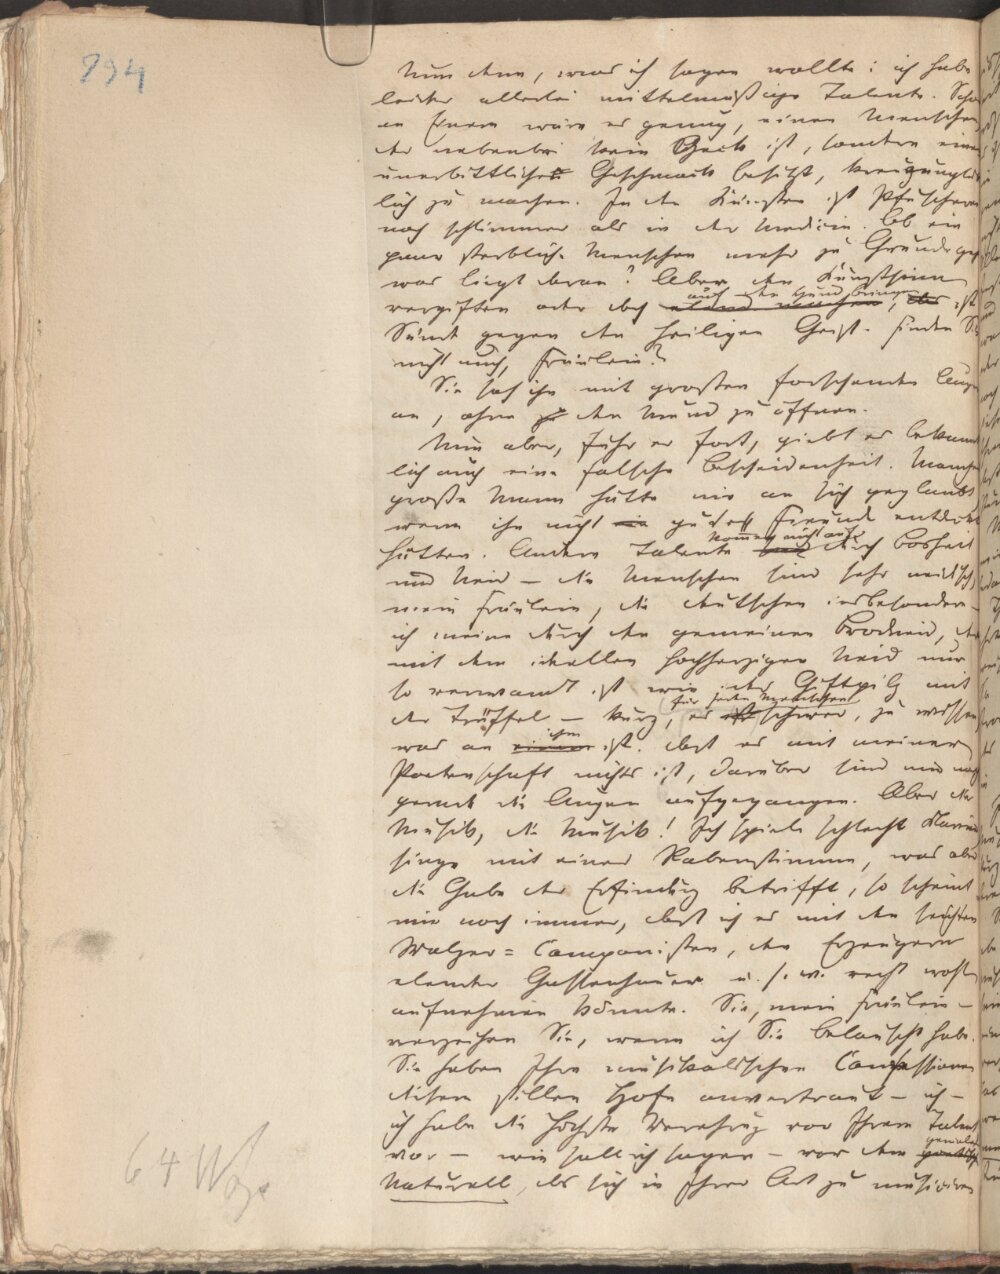 294
Nun denn, was ich sagen wollte: ich habe
leider allerlei mittelmäßige Talente. Schon
an Einem wäre es genug, einen Menschen
der nebenbei kein Geck ist, sondern einen
unerbittlichen Geschmack besitzt, kreuzunglück
lich zu machen. In den Künsten ist Pfuscherei
noch schlimmer als in der Medicin. Ob ein
paar sterbliche Menschen mehr zu Grunde gehn
was liegt daran? Aber den Kunstsinn
auf den Hund bringen
vergiften oder doch elend machen, das ist
Sünde gegen den heiligen Geist. Finden Sie
nicht auch, Fräulein?
Sie sah ihn mit großen forschenden Augen
an, ohne den Mund zu öffnen.
Nun aber, fuhr er fort, giebt es bekannt
lich auch eine falsche Bescheidenheit. Mancher
große Mann hätte nie an sich geglaubt
wenn ihn nicht gute Freunde entdeckt
kommen nicht auf
hätten. Andere Talente durch Bosheit
und Neid – die Menschen sind sehr neidisch,
mein Fräulein, die Deutschen insbesondere –
ich meine durch den gemeinen Brodneid, der
mit dem idealen hochherzigen Neid nur
so verwandt ist wie der Giftpilz mit
für jeden Menschen
der Trüffel – kurz, es ist schwer, zu wissen
ihm
was an einem ist. Daß es mit meiner
Poetenschaft nichts ist, darüber sind mir noch
gerade die Augen aufgegangen. Aber die
Musik, die Musik! Ich spiele schlecht Clavier
singe mit einer Rabenstimme, was aber
die Gabe der Erfindung betrifft, so scheint
mir noch immer, daß ich es mit den seichten
Walzer=Componisten, den Erzeugern
elender Gassenhauer u. s. w. recht wohl
aufnehmen könnte. Sie, mein Fräulein –
verzeihen Sie, wenn ich Sie belauscht habe.
Sie haben Ihre musikalischen Confessionen
diesem stillen Hofe anvertraut – ich –
ich habe die höchste Verehrung vor Ihrem Talent
genialen
vor – wie soll ich sagen – vor dem
Naturell, das sich in Ihrer Art zu musiciren
64